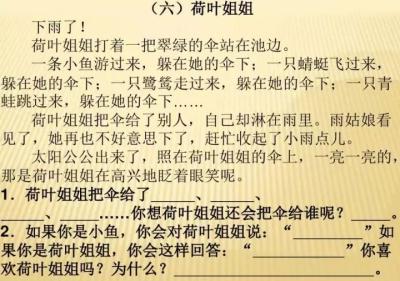 （六）荷叶姐姐
下雨了！
荷叶姐姐打着一把翠绿的伞站在池边。
一条小鱼游过来，躲在她的伞下；一只蜻蜓飞过来，
躲在她的伞下；一只鹭鸶走过来，躲在她的伞下；一只青
蛙跳过来，躲在她的伞下……
荷叶姐姐把伞给了别人，自己却淋在雨里。雨姑娘看
见了，她再也不好意思下了，赶忙收起了小雨点儿。
太阳公公出来了，照在荷叶姐姐的伞上，一亮一亮的，
那是荷叶姐姐在高兴地眨着眼笑呢。
1．荷叶姐姐把伞给了____、____、
____、____……你想荷叶姐姐还会把伞给谁呢？____。
2．如果你是小鱼，你会对荷叶姐姐说：“________”如
果你是荷叶姐姐，你会这样回答：“________”你喜
欢荷叶姐姐吗？为什么？________________。